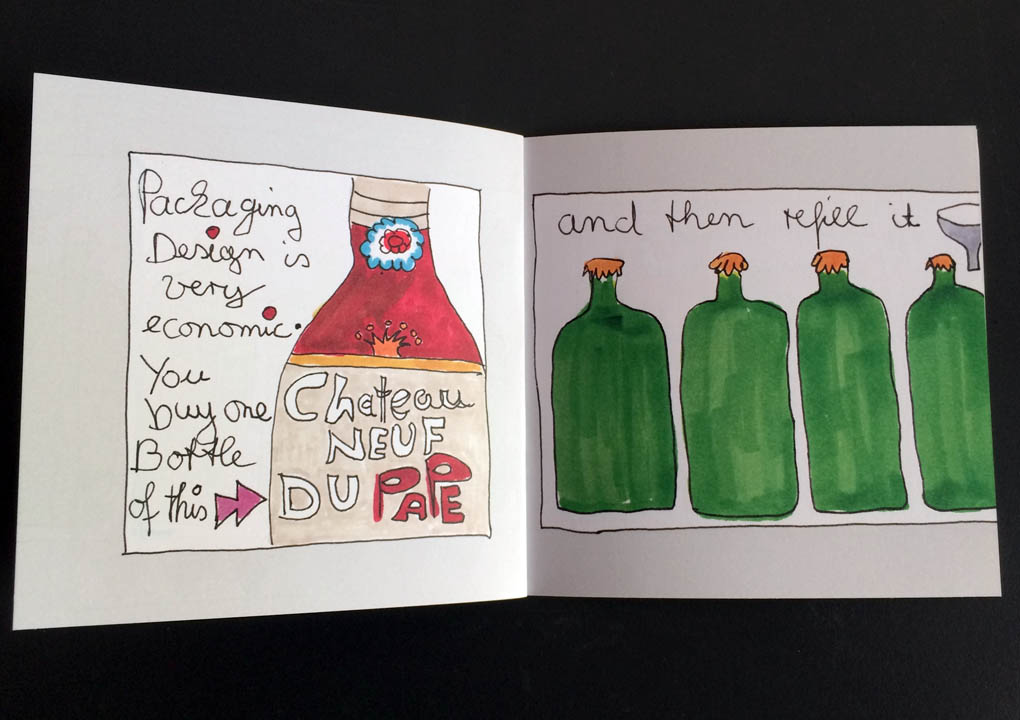 Packaging
Design is
very
economic.
You
buy one
Bottle
of this
Chateau
NEUF
DU PAPE
and then refill it